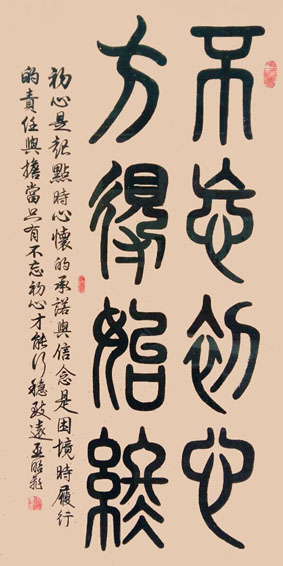 不忘初心
方得始終
初心是起點時心懷的承諾與信念是困境時履行
的責任與擔當只有不忘初心才能行穩致遠